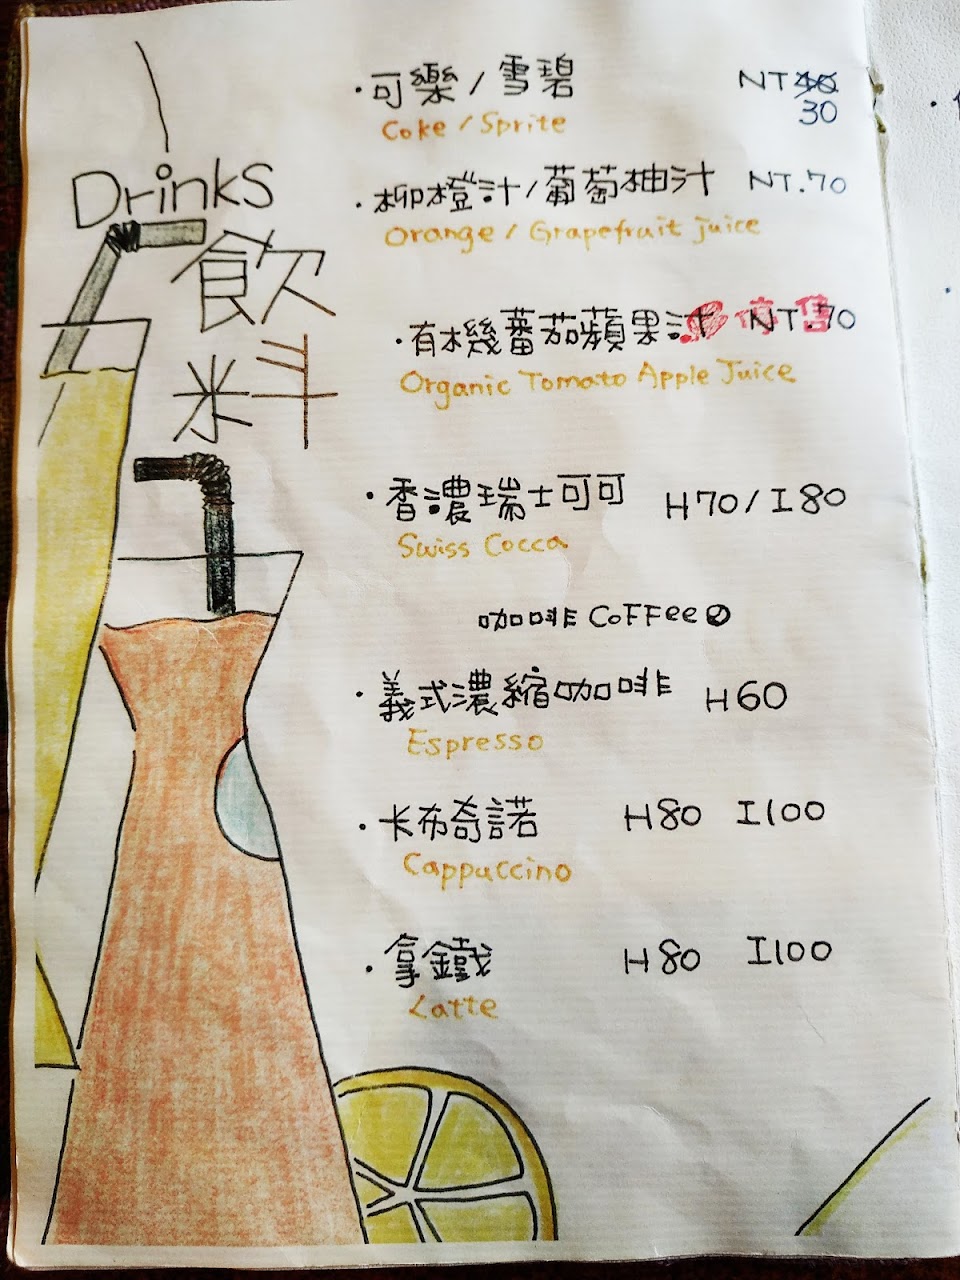 Drinks
飲
料
·可樂/雪碧 NT 40
30
Coke / Sprite
·柳橙汁/葡萄柚汁 NT.70
Orange / Grapefruit juice
·有機蕃茄蘋果汁 停售 NT.70
Organic Tomato Apple Juice
·香濃瑞士可可 H70/I80
Swiss Cocca
咖啡 CoFFee
·義式濃縮咖啡 H60
Espresso
·卡布奇諾 H80 I100
Cappuccino
·拿鐵 H80 I100
Latte